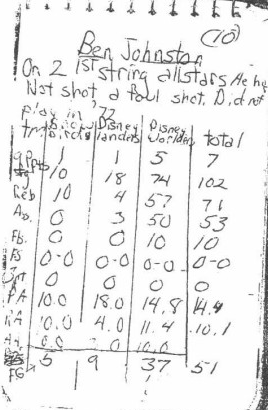 (10)
Ben Johnston
On 2 1st string allstars As he
Not shot a foul shot. Did not
play in '72
tm Birchs Disney landers Disney worlders total
g 1 1 5 7
Pts 10 18 74 102
Reb 10 4 57 71
As. 0 3 50 53
Fb. 0 0 10 10
FS 0-0 0-0 0-0 0-0
0 0 0 0
PA 10.0 18.0 14.8 14.4
RA 10.0 4.0 11.4 10.1
0.0 10.0
FG 5 9 37 51